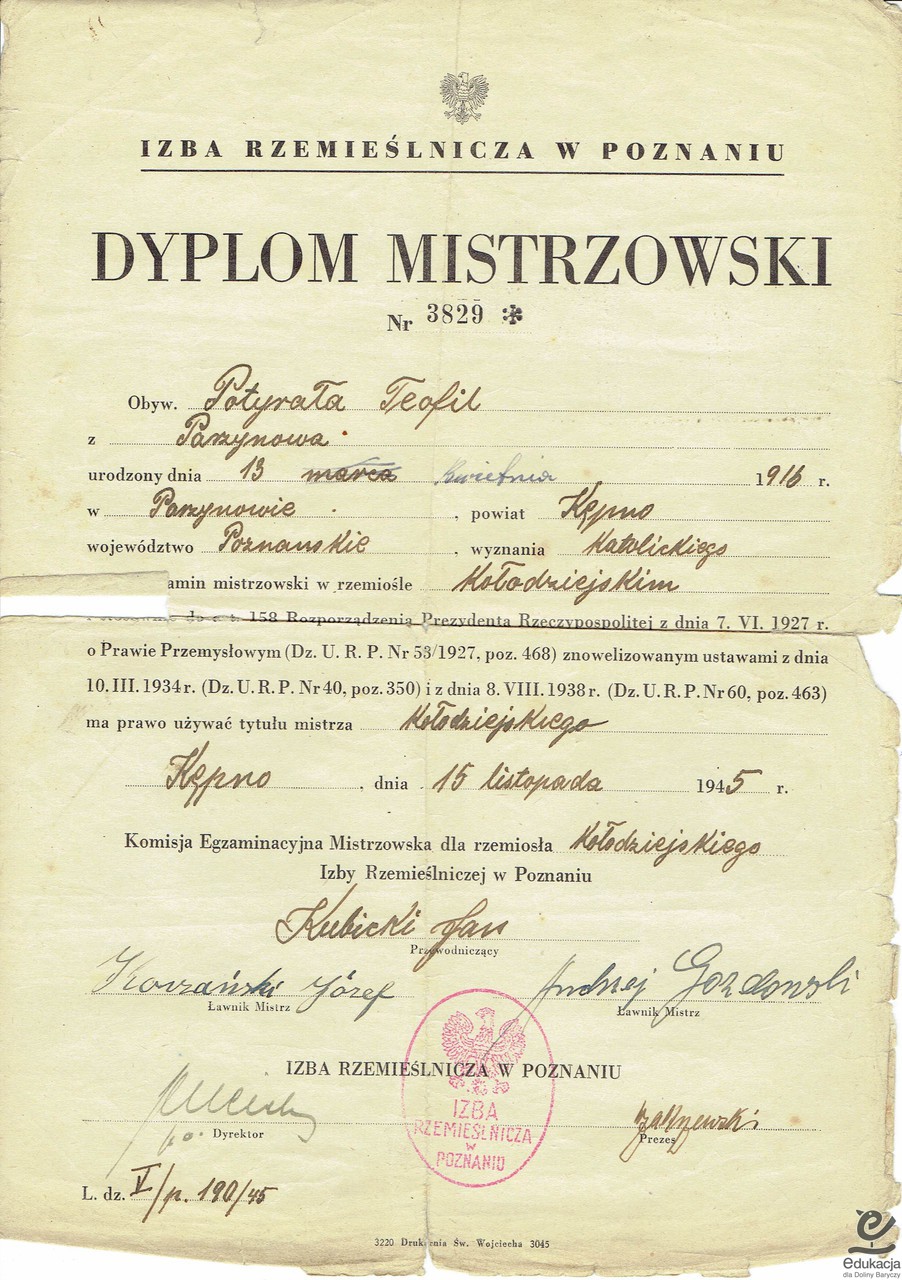 IZBA RZEMIEŚLNICZA W POZNANIU
DYPLOM MISTRZOWSKI
Nr 3829
Obyw. Potyrała Teofil
z Parzynowa
urodzony dnia 13 marca kwietnia 1916 r.
w Parzynowie , powiat Kępno
województwo Poznańskie , wyznania Katolickiego
amin mistrzowski w rzemiośle Kołodziejskim
158 Rozporządzenia Prezydenta Rzeczypospolitej z dnia 7. VI. 1927 r.
o Prawie Przemysłowym (Dz. U. R. P. Nr 53/1927, poz. 468) znowelizowanym ustawami z dnia
10. III. 1934 r. (Dz. U. R. P. Nr 40, poz. 350) i z dnia 8. VIII. 1938 r. (Dz. U. R. P. Nr 60, poz. 463)
ma prawo używać tytułu mistrza Kołodziejskiego
Kępno , dnia 15 listopada 1945 r.
Komisja Egzaminacyjna Mistrzowska dla rzemiosła Kołodziejskiego
Izby Rzemieślniczej w Poznaniu
Kubicki Jan
Przewodniczący
Józef Andrzej Gozdowski
Ławnik Mistrz Ławnik Mistrz
IZBA RZEMIEŚLNICZA W POZNANIU
IZBA
RZEMIEŚLNICZA
w
POZNANIU
po. Dyrektor Prezes
L. dz. V/p. 190/45
3220 Drukarnia Św. Wojciecha 3045
eDukacja
dla Doliny Baryczy